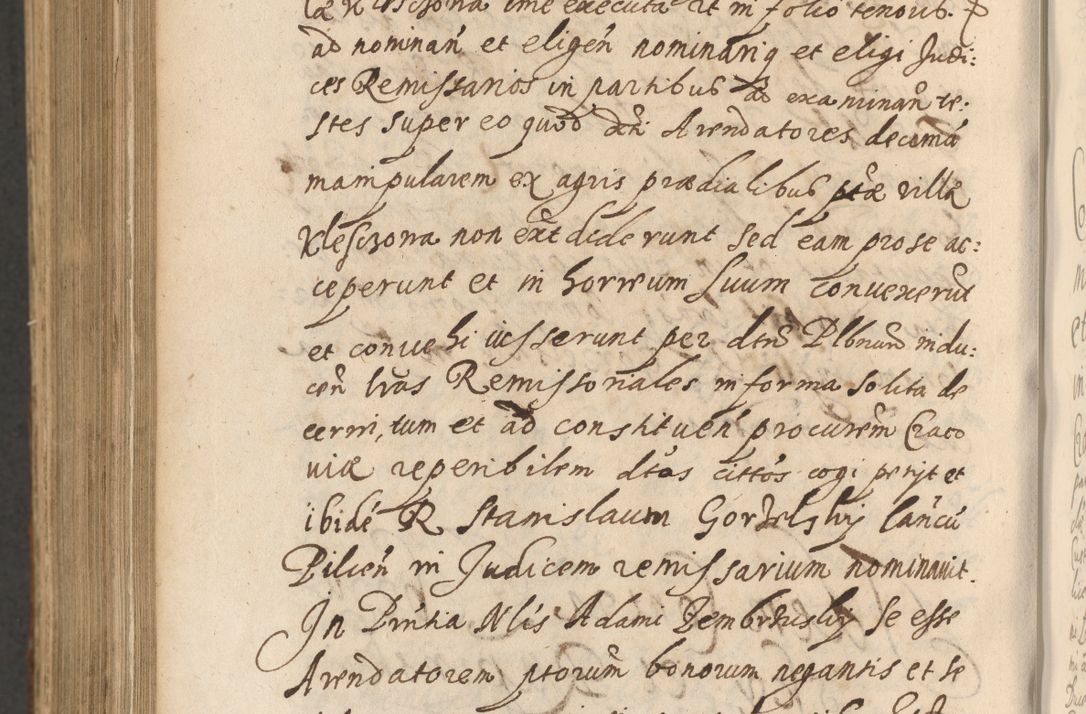 ad nominan̄ et eligen̄ nominariq et eligi Judi:
ces Remissarios in partibus ad examinan̄ te:
stes super eo quod dcti Arendatores decimā
manipularem ex agris prædialibus ptæ villæ
Kleszczona non extdiderunt sed eam pro se ac:
ceperunt et in horreum suum convexerūt
et convehi iusserunt per dtm̄ Plbnum indu:
cen̄ lras Remissoriales in forma solita de
cerni, tum et ad constituen̄ procurem Craco
viæ reperibilem dtos cittos cogi petijt et
ibidē R Stanislaum Gorzelskij Canc̄u
Pilcen̄ in Judicem remissarium nominavit.
In Pn̄tia Nlis Adami Dembinskij se esse
Arendatorem ptorum bonorum negantis et se